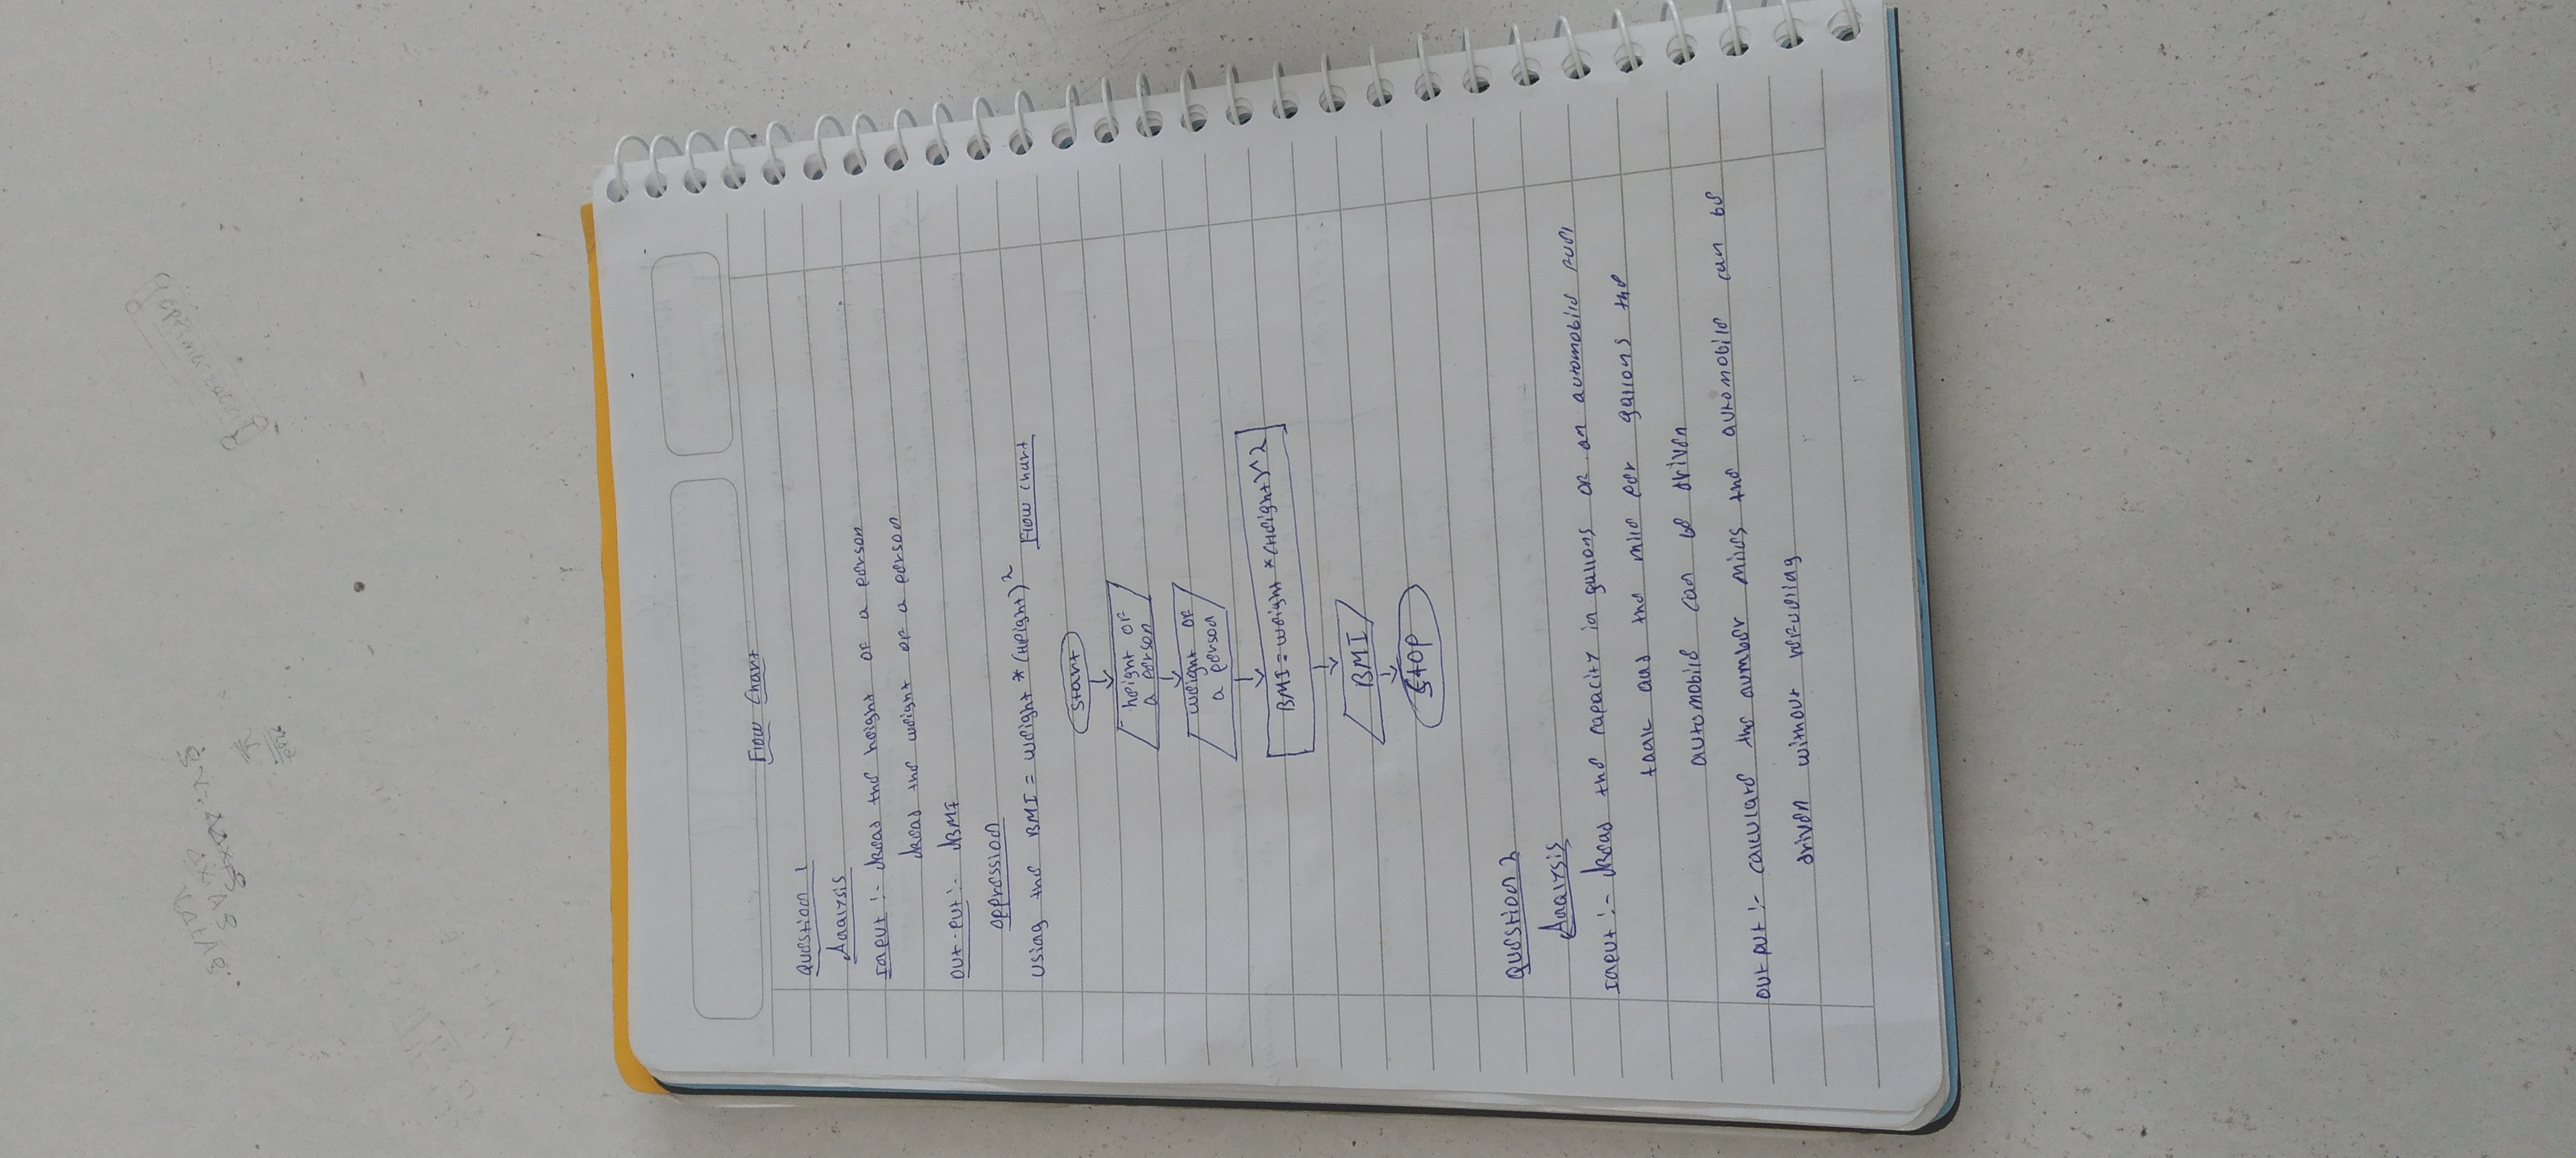 Flow Chart
Question 1
Analysis
Input :- Read the height of a person
Read the weight of a person
Out-put :- BMI
oppression
Using the BMI = weight * (Height)^2 Flow chart
Start
height of
a person
weight of
a person
BMI = weight * (Height)^2
BMI
Stop
Question 2
Analysis
Input :- Read the capacity in gallons of an automobile fuel
tank and the mile per gallons the
automobile can be driven
Out put :- calculate the number miles the automobile can be
driven without refueling